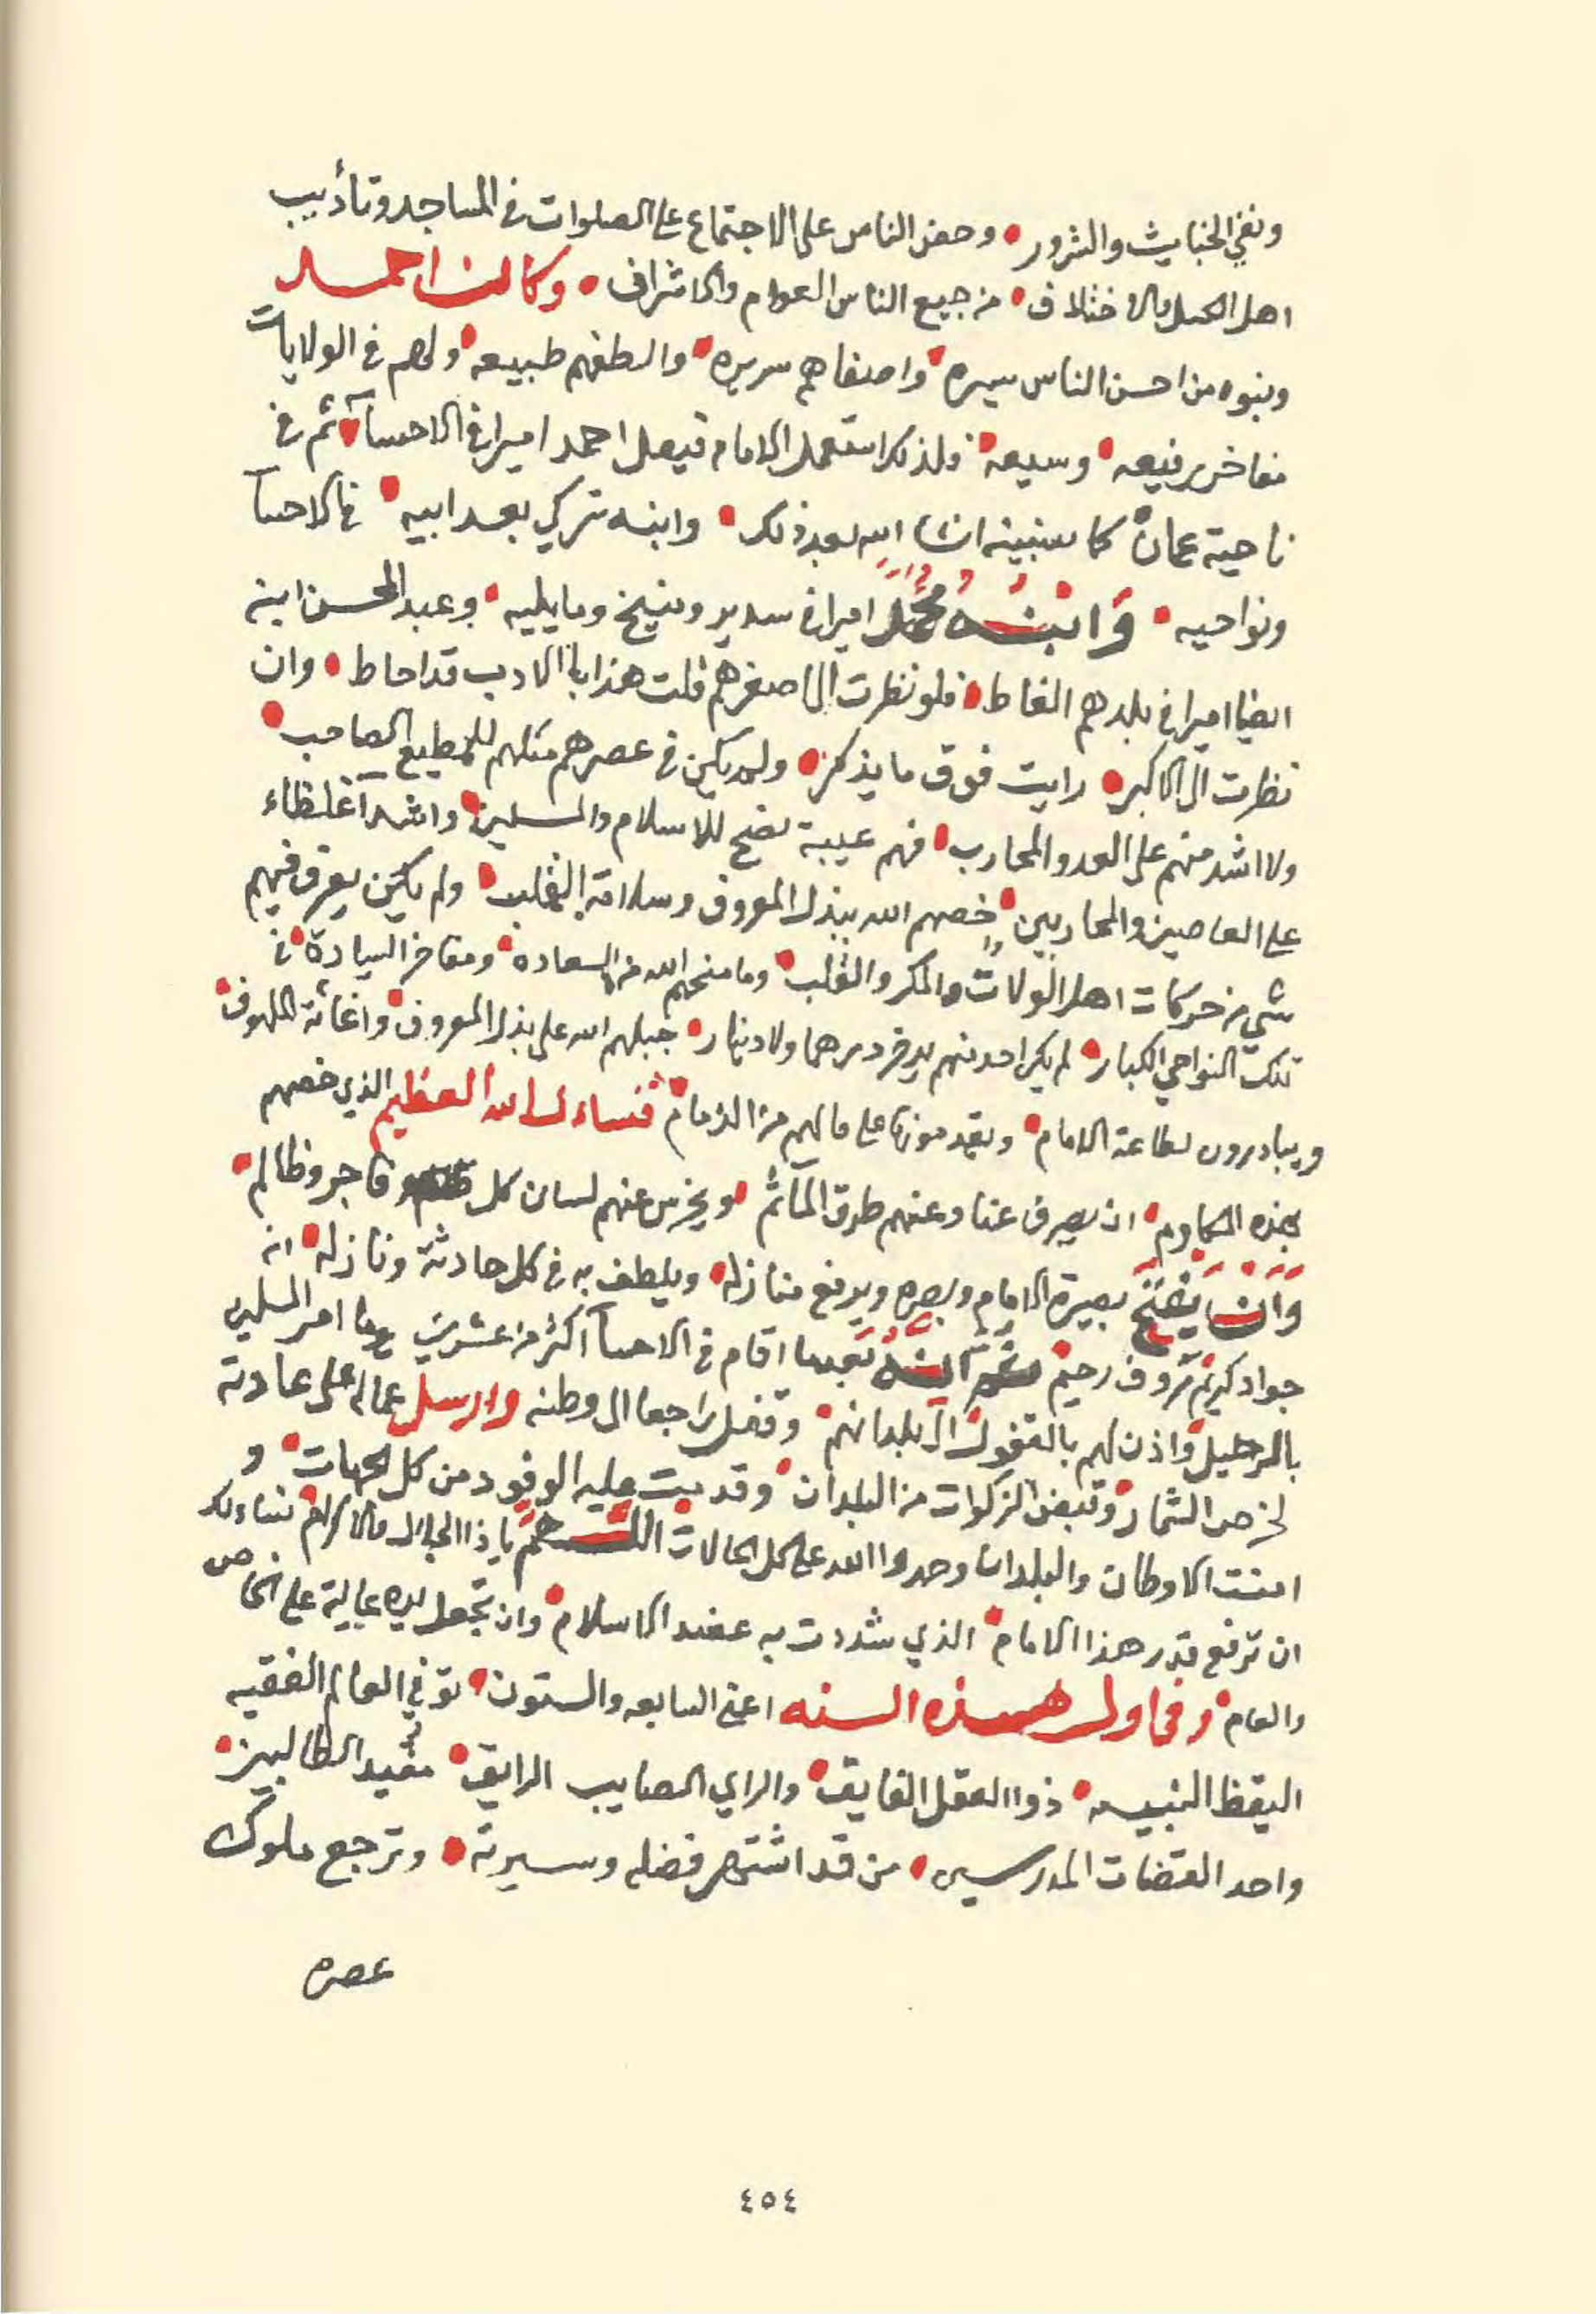 ونفي الخبايث والشرور • وحض الناس على الاجتماع على الصلوات في المساجد وتأديب
اهل الكسل والاختلاف • من جميع الناس العوام والاشراف • وكان احمد
وبنوه من احسن الناس سيره • واصفاهم سريره • والطفهم طبيعه • ولهم في الولايات
مفاخر رفيعه • وسيعه • ولذلك استعمل الامام فيصل احمد اميرا في الاحسآء • ثم في
ناحية عمان كما سنبينه انشا الله بعد ذلك • وابنه تركي بعد ابيه • في الاحسآ
ونواحيه • وَابنُهُ محمَّد اميرا في سدير ومنيخ وما يليه • وعبد المحسن ابنه
ايضا اميرا في بلدهم الغاط • فلو نظرت الى اصغرهم قلت هذا بالادب قد احاط • وان
نظرت الى الاكبر • رايت فوق ما يذكر • ولم يكن في عصرهم مثلهم للمطيع الصاحب •
ولا اشد منهم على العدو المحارب • فهم عيبة نصح للاسلام والمسلمين • واشدآ غلظاء
على العاصين والمحاربين • خصهم الله ببذل المعروف وسلامة القلب • ولم يكن يعرف فيهم
شي من حركات اهل الولات والمكر والثلب • وما منحهم الله من السعادة • ومفاخر السيادة • في
تلك النواحي الكبار • لم يكن احد منهم يدخر درهما ولا دينار • جبلهم الله على بذل المعروف • واغاثة الملهوف •
ويبادرون لطاعة الامام • ويقدمونها على مالهم من الذمام • فنساءل الله العظيم الذي خصهم
بهذه المكارم • ان يصرف عنا وعنهم طرق المآثم • ويخرس عنهم لسان كل فاجر وظالم •
وَان يَفتَحَ بصيرة الامام وبصره ويرفع منازله • ويلطف به في كل حادثة ونازله • انه
جواد كريم رءوف رحيم ثُمَّ انَّهُ بَعد ما اقام في الاحسآ اكثر من عشرين يوما امر المسلمين
بالرحيل • واذن لهم بالقفول الى بلدانهم • وقفل راجعا الى وطنه وارسل عماله على عادته
لخرص الثمار • وقبض الزكوات من البلدان • وقدمت عليه الوفود من كل الجهات • و
امنت الاوطان والبلدان وحمدوا الله على كل الحالات اللّهمَّ يا ذا الجلال والاكرام نساءلك
ان ترفع قدر هذا الامام • الذي شددت به عضد الاسلام • وان تجعل يده عالية على الخاص
والعام • وفي اول هذه السنه اعني السابعه والستون • توفي العالم الفقيه
اليقظ النبيه • ذوا العقل الفايق • والراي الصايب الرايق • مفيد الطالبين •
واحد القضات المدرسين • من قد اشتهر فضله وسيرته • وترجع ملوك
عصره
٤٥٤